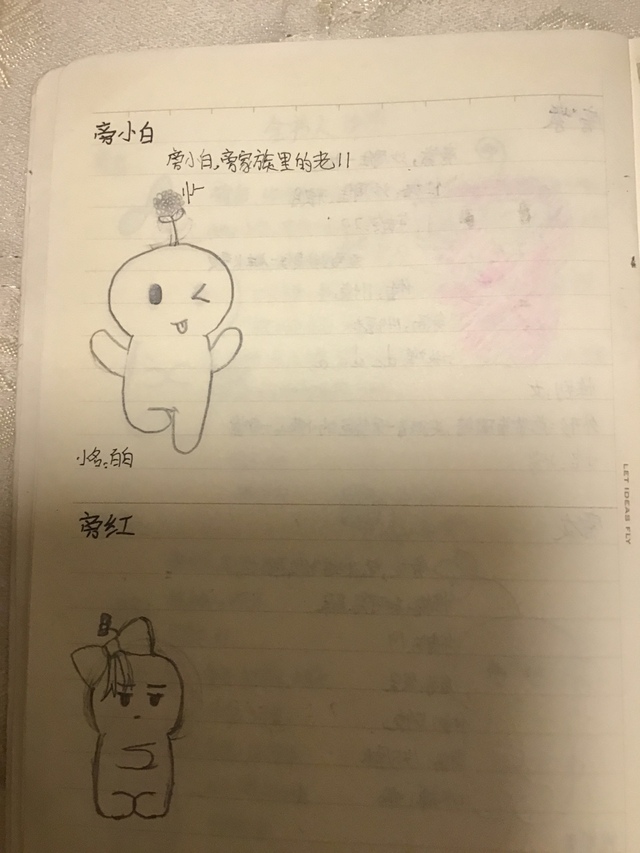 旁小白
旁小白,旁家族里的老11
小名:白白
旁红
LET IDEAS FLY